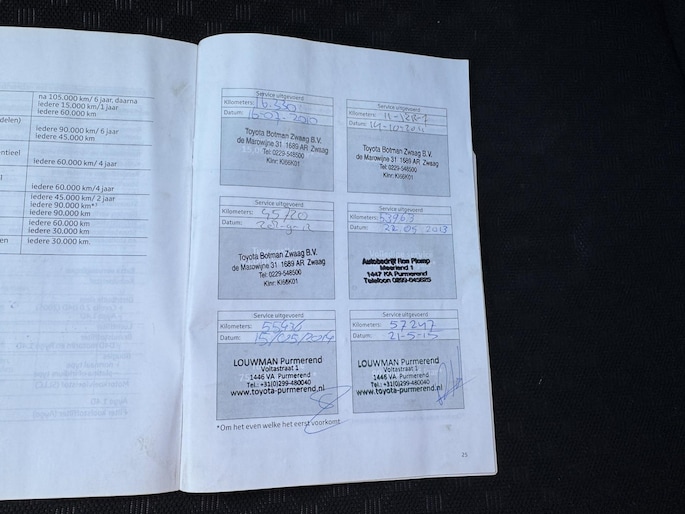 na 105.000 km/ 6 jaar, daarna
iedere 15.000 km/1 jaar
iedere 60.000 km
delen)
iedere 90.000 km/ 6 jaar
iedere 45.000 km
entieel
iedere 60.000 km/ 4 jaar
iedere 60.000 km/4 jaar
iedere 45.000 km/ 2 jaar
iedere 90.000 km*⁷
iedere 90.000 km
iedere 60.000 km
iedere 30.000 km
en iedere 30.000 km.
Service uitgevoerd
Kilometers: 16.330
Datum: 16-07-2010
Toyota Botman Zwaag B.V.
de Marowijne 31 1689 AR Zwaag
Tel: 0229-548500
Klnr: KI66K01
Service uitgevoerd
Kilometers:
Datum: 14-10-2011
Toyota Botman Zwaag B.V.
de Marowijne 31 1689 AR Zwaag
Tel: 0229-548500
Klnr: KI66K01
Service uitgevoerd
Kilometers: 45720
Datum:
Toyota Botman Zwaag B.V.
de Marowijne 31 1689 AR Zwaag
Tel: 0229-548500
Klnr: KI66K01
Service uitgevoerd
Kilometers: 53963
Datum: 22 05 2013
Autobedrijf Ron Plomp
Meerland 1
1447 KA Purmerend
Telefoon 0299-645625
Service uitgevoerd
Kilometers: 55936
Datum: 15/05/2014
LOUWMAN Purmerend
Voltastraat 1
1446 VA Purmerend
Tel.: +31(0)299-480040
www.toyota-purmerend.nl
Service uitgevoerd
Kilometers: 57247
Datum: 21-5-15
LOUWMAN Purmerend
Voltastraat 1
1446 VA Purmerend
Tel.: +31(0)299-480040
www.toyota-purmerend.nl
*Om het even welke het eerst voorkomt
25